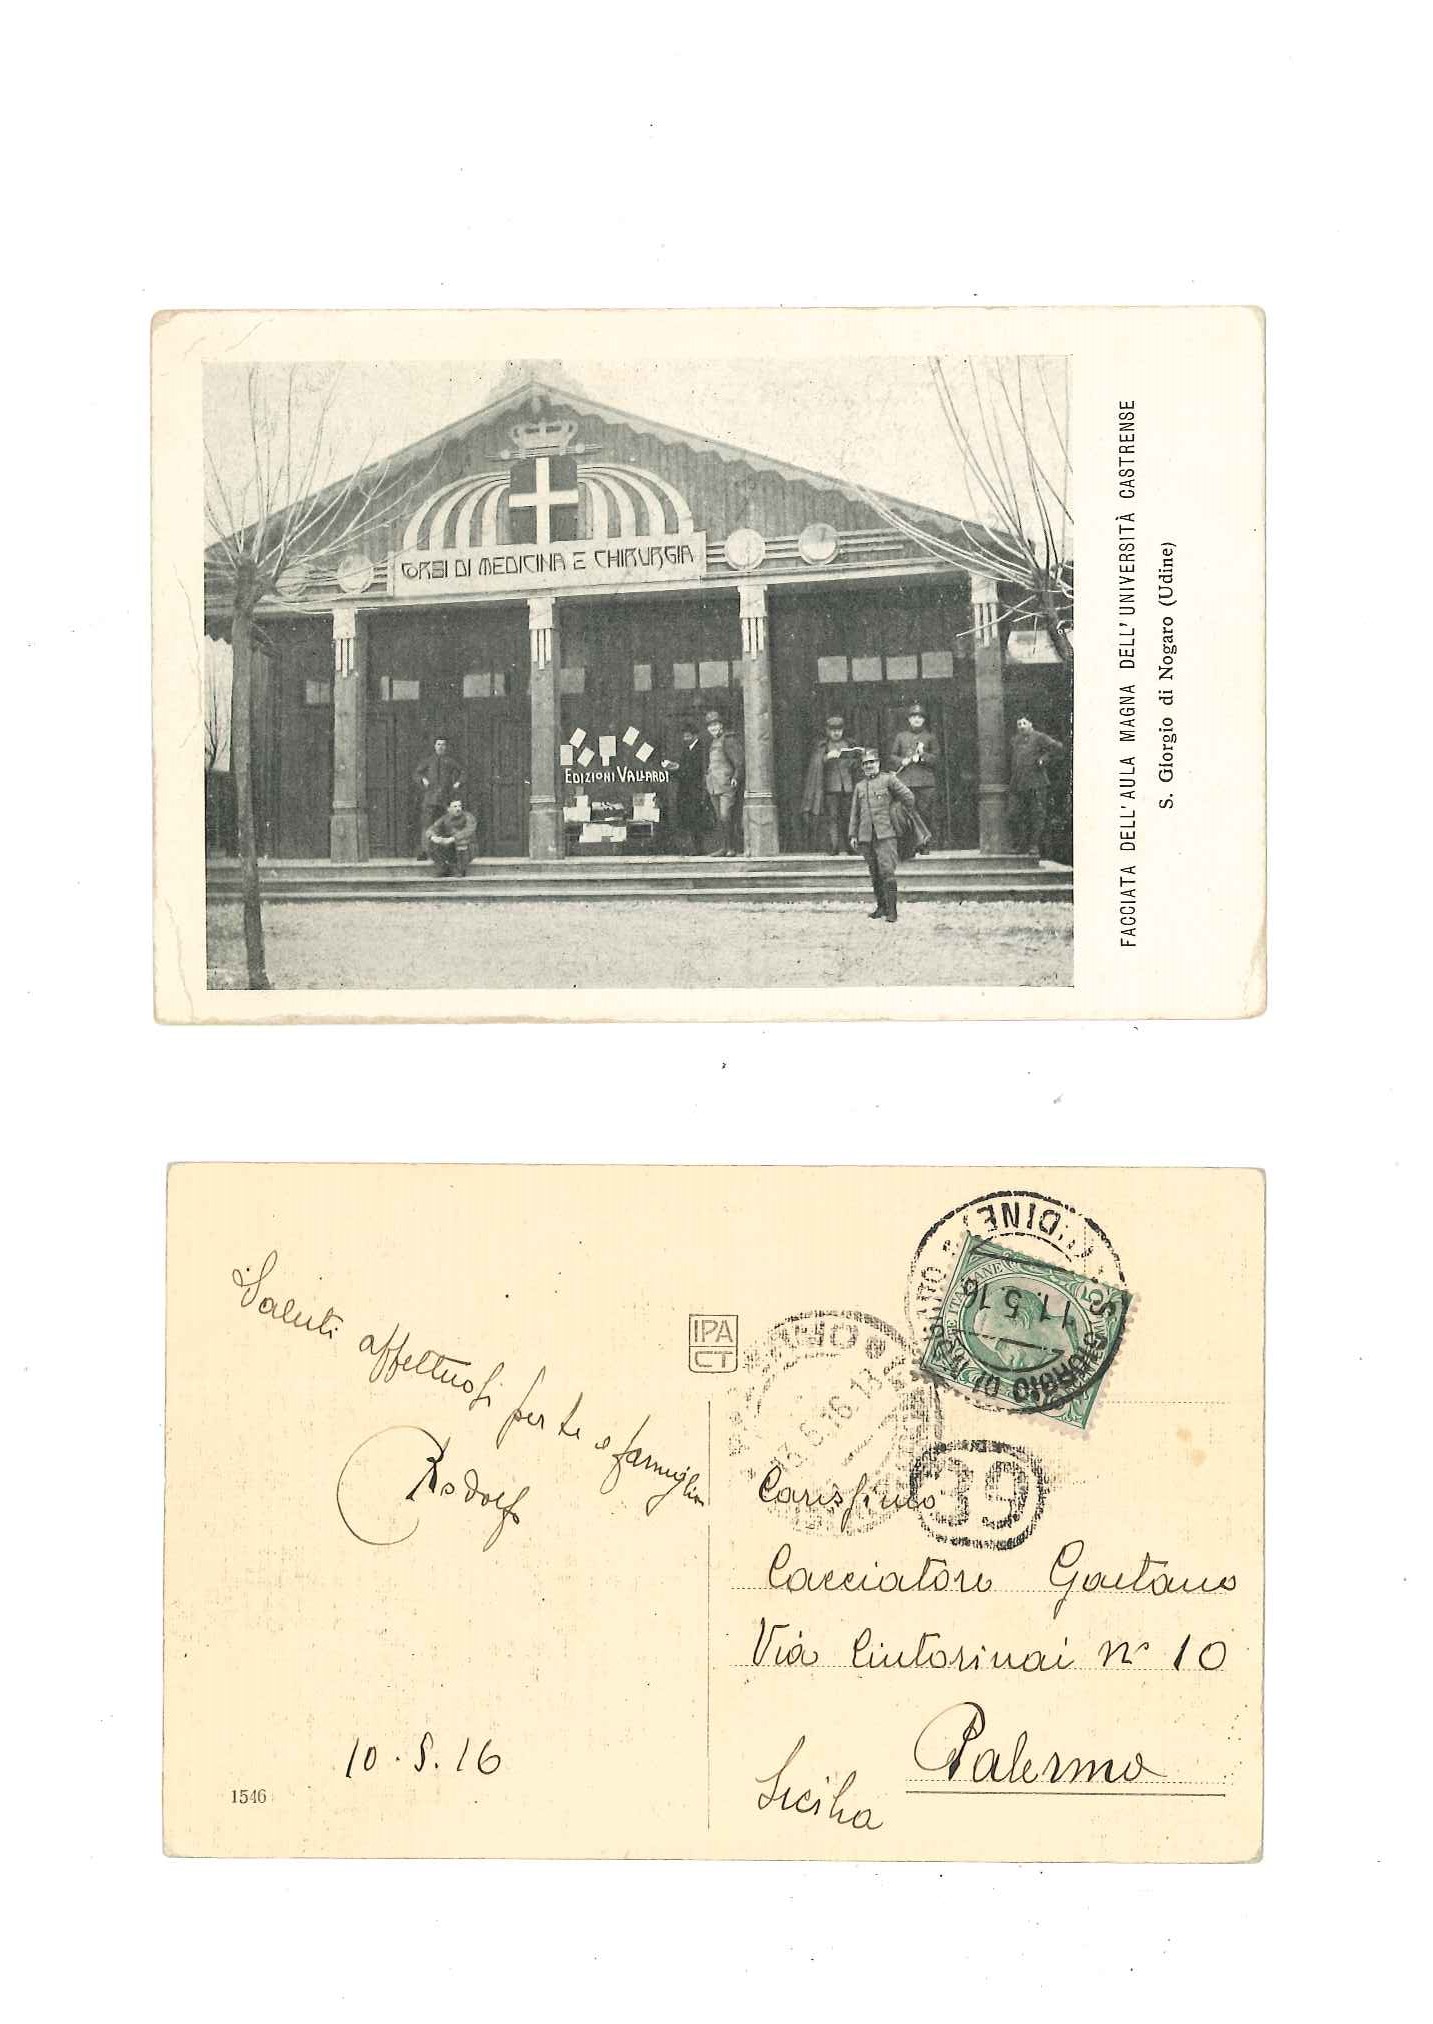 CORSI DI MEDICINA E CHIRURGIA
EDIZIONI VALLARDI
FACCIATA DELL' AULA MAGNA DELL' UNIVERSITÀ CASTRENSE
S. Giorgio di Nogaro (Udine)
Saluti affettuosi per te e famiglia
Rodolfo
10.5.16
1546
IPA
CT
S. GIORGIO DI NOGARO (UDINE)
11.5.16
39
Carissimo
Cacciatore Gaetano
Via Cintorinai n° 10
Palermo
Sicilia